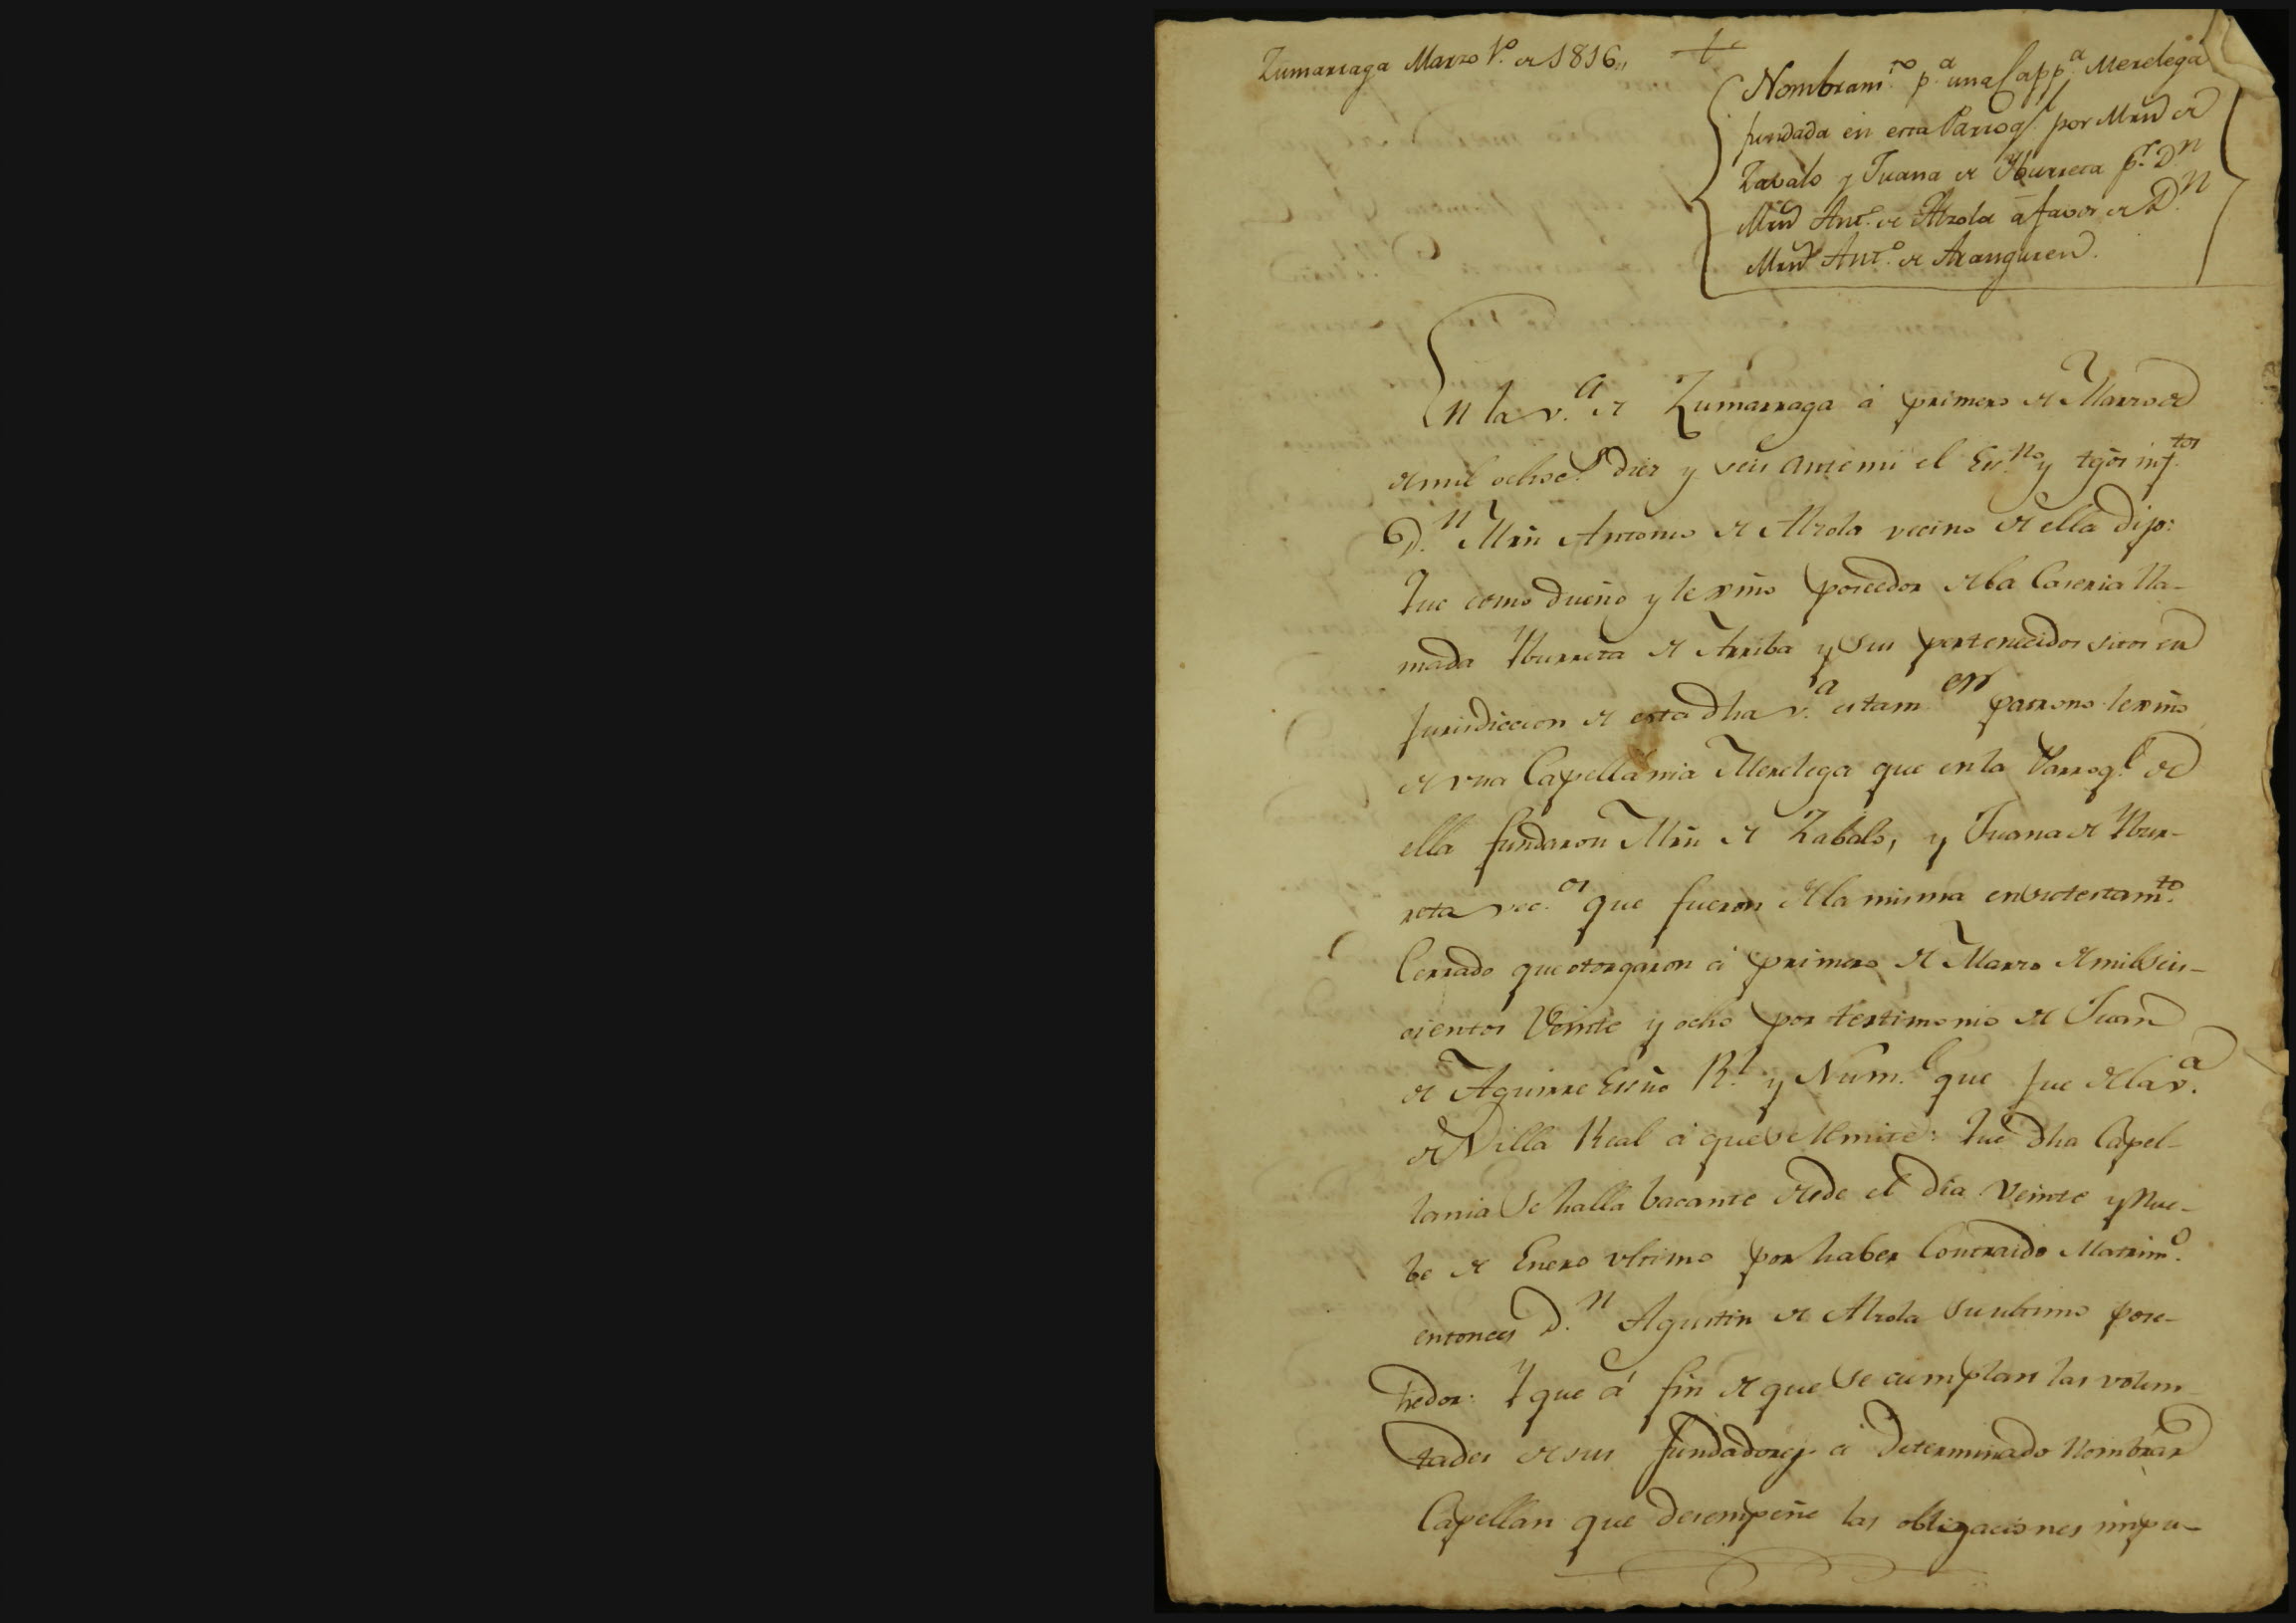 Zumarraga Marzo 1.º de 1816,,
Nombram.to p.a una Capp.a Merelega
fundada en esta Parroq.l por Mrñ de
Zavalo y Juana de Yburreta p.r D.n
Mrñ Ant.o de Alzola á favor de D.n
Mrñ Ant.o de Aranguren.
En la v.a de Zumarraga á primero de Marzo de
de mil ochoc.s diez y seis ante mi el Es.no y tgõs inf.tos
D.n Mrñ Antonio de Alzola vecino de ella dijo:
Que como dueño y lexmo poseedor de la Caseria lla-
mada Yburreta de Arriba y sus pertenecidos sitos en
Jurisdiccion de esta dha v.a es tam.en patrono lexmo
de vna Capellania Merelega que en la Parroq.l de
ella fundaron Mrñ de Zabalo, y Juana de Ybur-
reta vec.os que fueron de la misma en su testam.to
Cerrado que otorgaron á primero de Marzo de mil seis-
cientos Veinte y ocho por testimonio de Juan
de Aguirre Essño R.l y Num.l que fue de la v.a
de Villa Real á que se remite: Que dha Capel-
lania se halla bacante desde el dia Veinte y Nue-
be de Enero vltimo por haber Contraido Matrim.o
entonces D.n Agustin de Alzola su ultimo pose-
hedor: Y que á fin de que se cumplan las volun-
tades de sus fundadores á Determinado Nombrar
Capellan que desempeñe las obligaciones impu-